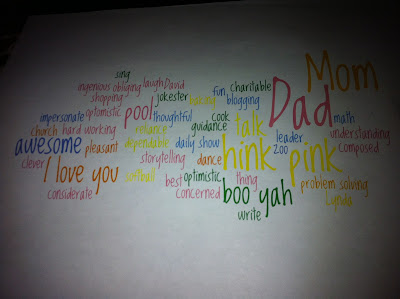 sing
Mom
ingenious obliging laugh David fun charitable
shopping jokester baking blogging Dad
impersonate optimistic pool thoughtful cook math
church hard working reliance guidance talk leader understanding
awesome pleasant dependable daily show zoo composed
clever storytelling dance hink pink
I love you softball best optimistic thing problem solving
considerate concerned boo yah Lynda
write